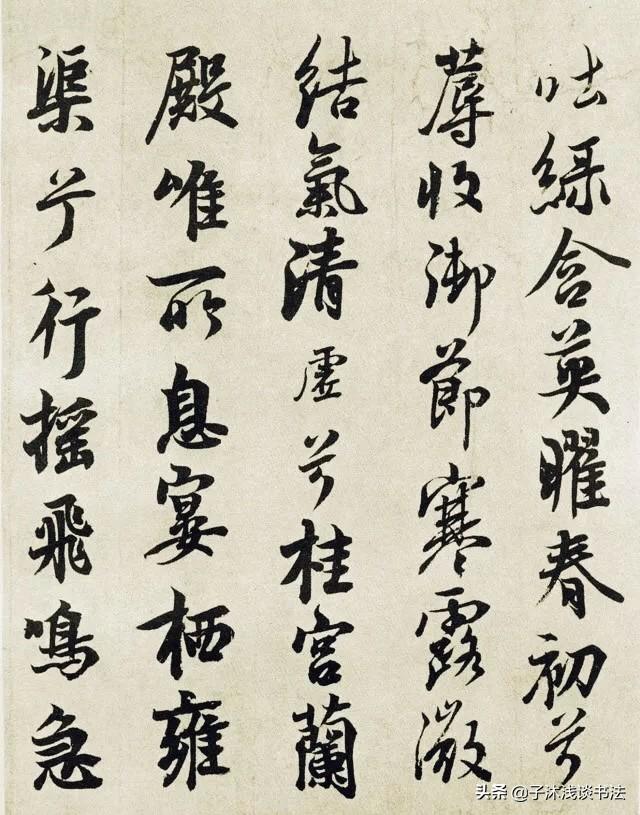 吐綠含英曜春初兮
蓐收御節寒露微
結氣清虛兮桂宮蘭
殿唯所息宴栖雍
渠兮行摇飛鳴急
头条 @子沐浅谈书法